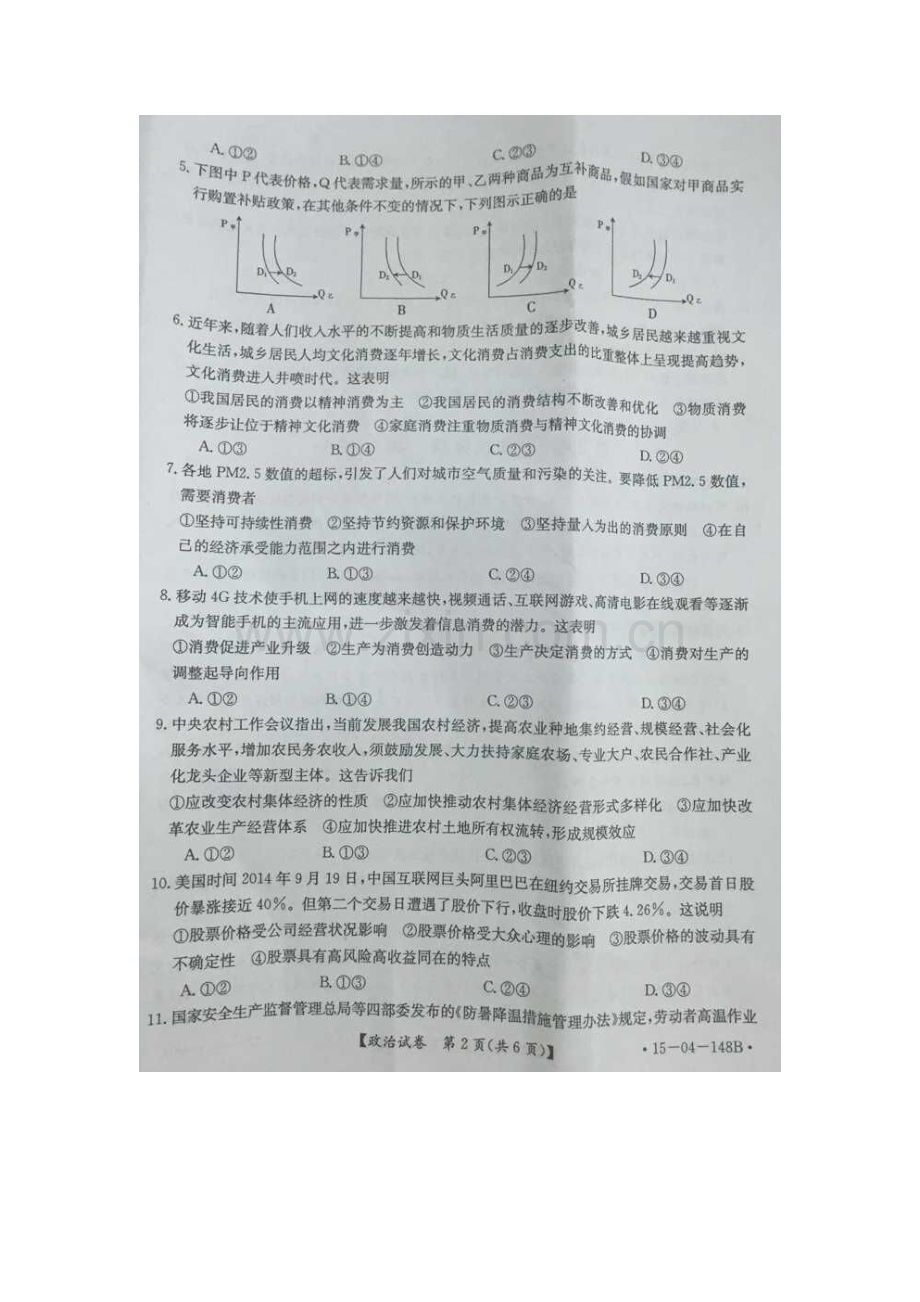 A. ①② B. ①④ C. ②③ D. ③④
5. 下图中 P 代表价格,Q 代表需求量,所示的甲、乙两种商品为互补商品,假如国家对甲商品实
行购置补贴政策,在其他条件不变的情况下,下列图示正确的是
P甲 P甲 P甲 P甲
D₁ D₂ D₂ D₁ D₁ D₂ D₂ D₁
Q乙 Q乙 Q乙 Q乙
A B C D
6. 近年来,随着人们收入水平的不断提高和物质生活质量的逐步改善,城乡居民越来越重视文
化生活,城乡居民人均文化消费逐年增长,文化消费占消费支出的比重整体上呈现提高趋势,
文化消费进入井喷时代。这表明
①我国居民的消费以精神消费为主 ②我国居民的消费结构不断改善和优化 ③物质消费
将逐步让位于精神文化消费 ④家庭消费注重物质消费与精神文化消费的协调
A. ①③ B. ①④ C. ②③ D. ②④
7. 各地 PM2. 5 数值的超标,引发了人们对城市空气质量和污染的关注。要降低 PM2. 5 数值,
需要消费者
①坚持可持续性消费 ②坚持节约资源和保护环境 ③坚持量入为出的消费原则 ④在自
己的经济承受能力范围之内进行消费
A. ①② B. ①③ C. ②④ D. ③④
8. 移动 4G 技术使手机上网的速度越来越快,视频通话、互联网游戏、高清电影在线观看等逐渐
成为智能手机的主流应用,进一步激发着信息消费的潜力。这表明
www.zixin.com.cn
①消费促进产业升级 ②生产为消费创造动力 ③生产决定消费的方式 ④消费对生产的
调整起导向作用
A. ①② B. ①④ C. ②③ D. ③④
9. 中央农村工作会议指出,当前发展我国农村经济,提高农业种地集约经营、规模经营、社会化
服务水平,增加农民务农收入,须鼓励发展、大力扶持家庭农场、专业大户、农民合作社、产业
化龙头企业等新型主体。这告诉我们
①应改变农村集体经济的性质 ②应加快推动农村集体经济经营形式多样化 ③应加快改
革农业生产经营体系 ④应加快推进农村土地所有权流转,形成规模效应
A. ①② B. ①③ C. ②③ D. ③④
10. 美国时间 2014 年 9 月 19 日,中国互联网巨头阿里巴巴在纽约交易所挂牌交易,交易首日股
价暴涨接近 40%。但第二个交易日遭遇了股价下行,收盘时股价下跌 4. 26%。这说明
①股票价格受公司经营状况影响 ②股票价格受大众心理的影响 ③股票价格的波动具有
不确定性 ④股票具有高风险高收益同在的特点
A. ①② B. ①③ C. ②④ D. ③④
11. 国家安全生产监督管理总局等四部委发布的《防暑降温措施管理办法》规定,劳动者高温作业
【政治试卷 第 2 页(共 6 页)】 • 15-04-148B •